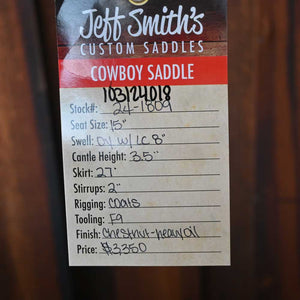 Jeff Smith's
CUSTOM SADDLES
COWBOY SADDLE
103124018
Stock#: 24-1809
Seat Size: 15"
Swell: W/ LC 8"
Cantle Height: 3.5"
Skirt: 27"
Stirrups: 2"
Rigging:
Tooling: F9
Finish: Chestnut-heavy oil
Price: $3350